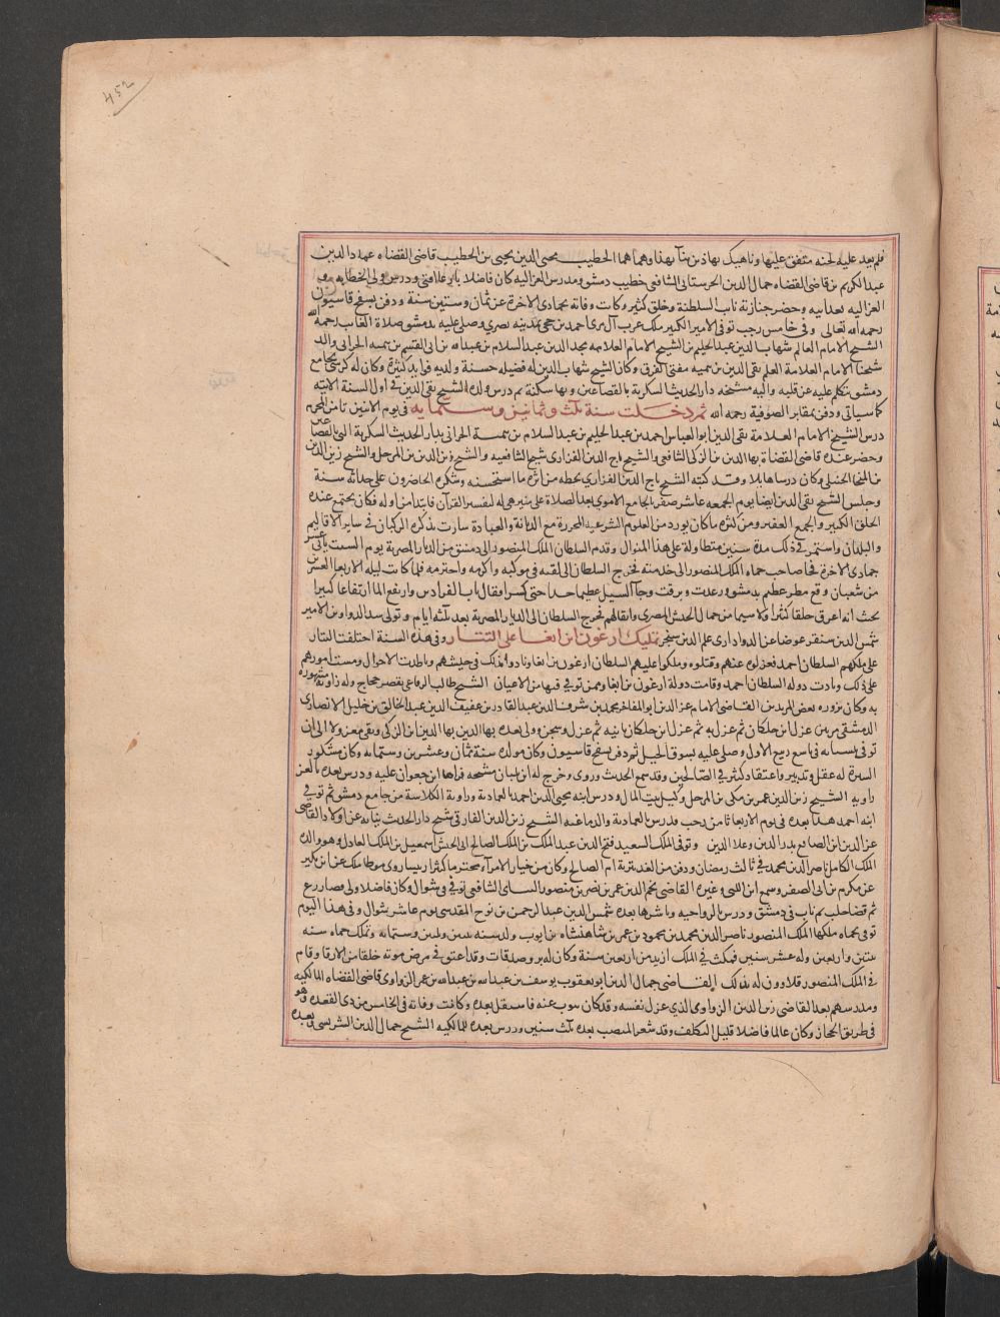 452
فلم بعد عليه لحنه متفق عليها وناهيك بهاذين بنآ بهذا وهما هما الخطيب محيى الدين يحيى بن الخطيب قاضى القضاه عماد الدين
عبد الكريم بن قاضى القضاه جمال الدين الحرستانى الشافعى خطيب دمشق ومدرس الغزاليه كان فاضلا بارعا افتى ودرس وولى الخطابه و
الغزاليه بعد ابيه وحضر جنازته نايب السلطنة وخلق كثير وكانت وفاته بجمادى الاخرة عن ثمان وستين سنة ودفن بسفح قاسيون
رحمه الله تعالى وفى خامس رجب توفى الامير الكبير ملك عرب آل مرى احمد بن حجى بمدينه بصرى وصلى عليه بدمشق صلاة الغايب رحمه الله
الشيخ الامام العالم شهاب الدين عبد الحليم بن الشيخ الامام العلامه مجد الدين عبد السلام بن عبد الله بن ابى القسم بن تيميه الحرانى والد
شيخنا الامام العلامة العلم تقى الدين بن تيميه مفتى الفرق وكان الشيخ شهاب الدين له فضيله حسنة ولديه فوايد كثيرة وكان له كرسى بجامع
دمشق يتكلم عليه عن قلبه واليه مشيخه دار الحديث السكرية بالقصاعين وبها سكنه ثم درس ولده الشيخ تقى الدين فى اول السنة الاتيه
كما سياتى ودفن بمقابر الصوفية رحمه الله ثم دخلت سنة ثلث وثمانين وستمايه فى يوم الاثنين ثامن المحرم
درس الشيخ الامام العلامة تقى الدين ابو العباس احمد بن عبد الحليم بن عبد السلام بن تيمية الحرانى بدار الحديث السكرية التى بالقصاعين
وحضر عنده قاضى القضاة بها الدين بن الزكى الشافعى والشيخ تاج الدين الفزارى شيخ الشافعيه والشيخ زين الدين بن المرحل والشيخ زين الدين
بن المنجا الحنبلى وكان درسا هايلا وقد كتبه الشيخ تاج الدين الفزارى بخطه من كثرة ما استحسنه وشكره الحاضرون على حداثة سنة
وجلس الشيخ تقى الدين ايضا يوم الجمعه عاشر صفر بالجامع الاموى بعد الصلاة على منبر هى له لتفسير القرآن فابتدا من اوله فكان يجتمع عنده
الخلق الكثير والجمع الغفير ومن كثرة ما كان يورد من العلوم الشرعيه المحررة مع الديانة والعبادة سارت بذكره الركبان فى ساير الاقاليم
والبلدان واستمر فى ذلك مدة سنين متطاولة على هذا المنوال وقدم السلطان الملك المنصور الى دمشق من الديار المصرية يوم السبت ثانى عشر
جمادى الاخرة فجا صاحب حماه الملك المنصور الى خدمته فخرج السلطان الى لقيه فى موكبه واكرمه واحترمه فلما كانت ليله الاربعا العشرين
من شعبان وقع مطر عظيم بدمشق ورعدت وبرقت وجآ السيل عظيما جدا حتى كسر اقفال باب الفراديس وارتفع الماا ارتفاعا كبيرا
بحيث انه اغرق خلقا كثيرا ولا سيما من جمال الجيش المصرى واثقالهم فخرج السلطان الى الديار المصرية بعد ثلثه ايام وتولى شد الدواوين الامير
شمس الدين سنقر عوضا عن الدوادارى علم الدين سنجر تمليك ارغون ابن ابغا على التتار وفى هذه السنة اختلفت التتار
على ملكهم السلطان احمد فعزلوه عنهم وقتلوه وملكوا عليهم السلطان ارغون بن ابغا ونادوا بذلك فى جيشهم وتاطدت الاحوال ومشت امورهم
على ذلك وبادت دوله السلطان احمد وقامت دولة ارغون بن ابغا وممن توفى فيها من الاعيان الشيخ طالب الرفاعى بقصر حجاج وله زاوية مشهوره
به وكان يزوره بعض المريدين القاضى الامام عز الدين ابو المفاخر محمد بن شرف الدين عبد القادر بن عفيف الدين عبد الخالق بن خليل الانصارى
الدمشقى مرتين عزل ابن خلكان ثم عزل به ثم عزل ابن خلكان ثانيه ثم عزل وسجن وولى بعده بها الدين بها الدين ابن الزكى وبقى معزولا الى ان
توفى ببستانه فى تاسع ربيع الاول وصلى عليه بسوق الخيل ثم دفن بسفح قاسيون وكان مولده سنة ثمان وعشرين وستمايه وكان مشكور
السيرة له عقل وتدبير واعتقاد كثير فى الصالحين وقد سمع الحديث وروى وخرج له ابن بلبان مشيخه قراها ابن جعوان عليه ودرس بعده بالعز
راويه الشيخ زين الدين عمر بن مكى بن المرحل وكيل بيت المال ودرس ابنه محيى الدين احمد بالعمادية وزاوية الكلاسة من جامع دمشق ثم توفى
ابنه احمد هذا بعده فى يوم الاربعا ثامن رجب فدرس بالعمادية والدماغيه الشيخ زين الدين الفارقى شيخ دار الحديث نيابه عن اولاد القاضى
عز الدين ابن الصايغ بدر الدين وعلاء الدين وتوفى الملك السعيد فتح الدين عبد الملك بن الملك الصالح ابى الجيش اسمعيل بن الملك العادل وهو والد
الملك الكامل ناصر الدين محمد فى ثالث رمضان ودفن من الغد بتربة ام الصالح وكان من خيار الامرآ محترما كبيرا رييسا روى موطا ملك عن ابن بكير
عن مكرم بن ابى الصقر وسمع ابن اللتى وغيره القاضى نجم الدين عمر بن نصر بن منصور البيسانى الشافعى توفى فى شوال وكان فاضلا ولى قضا زرع
ثم قضا حلب ثم ناب فى دمشق ودرس بالرواحيه وباشرها بعده شمس الدين عبد الرحمن بن نوح المقدسى يوم عاشر شوال وفى هذا اليوم
توفى بحماه ملكها الملك المنصور ناصر الدين محمد بن محمود بن عمر بن شاهنشاه بن ايوب ولد سنه ثلاثين وستمايه وتملك حماه سنه
ثنتين واربعين وله عشر سنين فمكث فى الملك ازيد من اربعين سنة وكان له بر وصدقات وقد اعتق فى مرض موته خلقا من الارقا وقام
فى الملك المنصور قلاوون له بذلك القاضى جمال الدين ابو يعقوب يوسف بن عبد الله بن عمر الزواوى قاضى القضاه المالكيه
ومدرسهم بعد القاضى زين الدين الزواوى الذى عزل نفسه وقد كان ينوب عنه فاستقل بعده وكانت وفاته فى الخامس من ذى القعده وهو
فى طريق الحجاز وكان عالما فاضلا قليل التكلف وقد شغر المنصب بعده ثلث سنين ودرس بعده للمالكيه الشيخ جمال الدين الشريشى وبعده